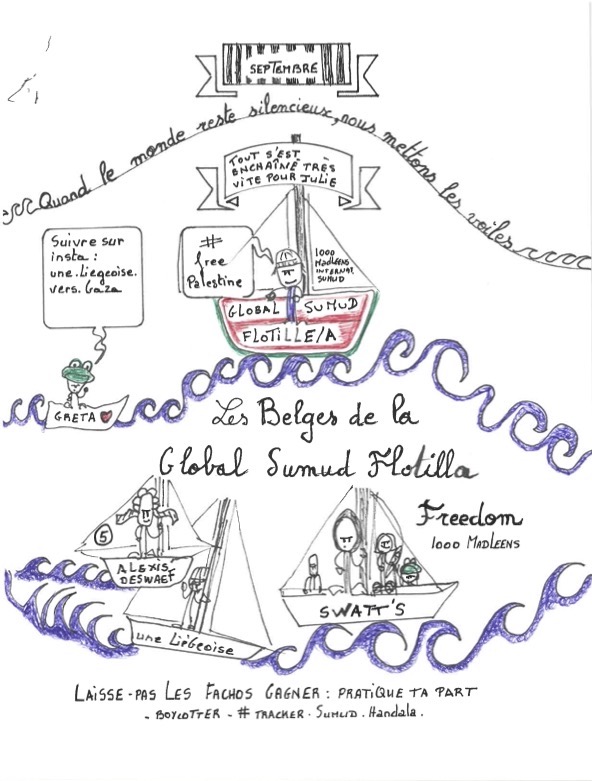 SEPTEMBRE
Quand le monde reste silencieux, nous mettons les voiles
TOUT S'EST
ENCHAÎNÉ TRÈS
VITE POUR JULIE
Suivre sur
insta :
une.liegeoise.
vers.Gaza
#
free
Palestine
1000
MADLEENS
INTERNAT.
SUMUD
GLOBAL SUMUD
FLOTILLE/A
GRETA
Les Belges de la
Global Sumud Flotilla
Freedom
1000 MADLEENS
5
ALEXIS
DESWAEF
SWATT'S
une Liégeoise
LAISSE-PAS LES FACHOS GAGNER : PRATIQUE TA PART
- BOYCOTTER - # TRACKER. SUMUD. Handala.